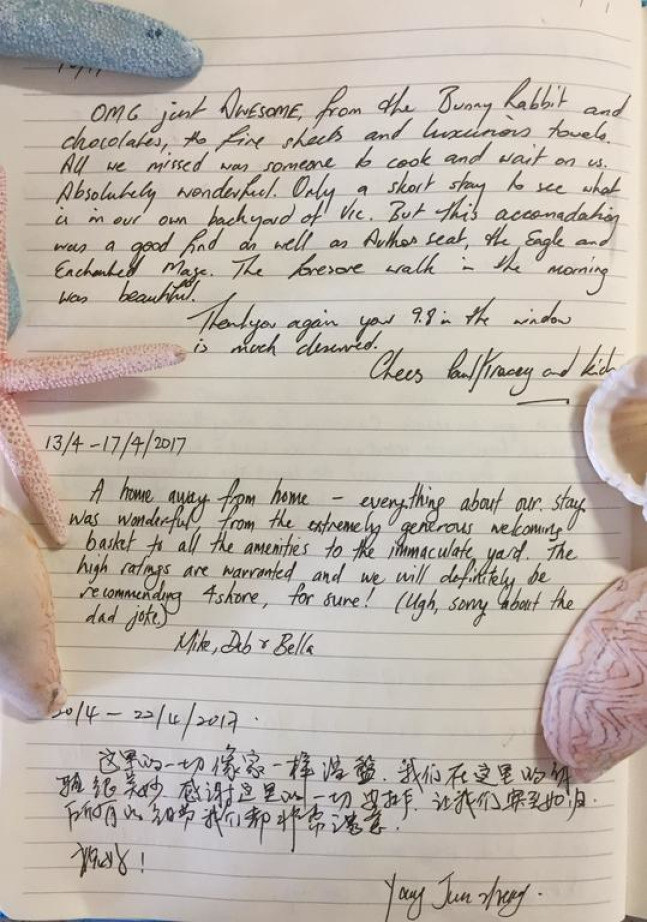 OMG just AWESOME, from the Bunny Rabbit and
chocolates, to fine sheets and luxurious towels.
All we missed was someone to cook and wait on us.
Absolutely wonderful. Only a short stay to see what
is in our own backyard of Vic. But this accomadation
was a good find as well as Authos seat, the Eagle and
Enchanted Maze. The foresore walk in the morning
was beautiful.
Thankyou again your 9.8 in the window
is much deserved.
Chees Paul/Tracey and kids
13/4 - 17/4/2017
A home away from home - everything about our stay
was wonderful, from the extremely generous welcoming
basket to all the amenities to the immaculate yard. The
high ratings are warranted and we will definitely be
recommending 4shore, for sure! (Ugh, sorry about the
dad joke)
Mike, Deb & Bella
20/4 - 22/4/2017.
这里的一切像家一样温馨. 我们在这里的体
验很美妙. 感谢这里的一切安排, 让我们宾至如归.
所有的细节我们都非常满意.
谢谢!
Yang Jun sheng.